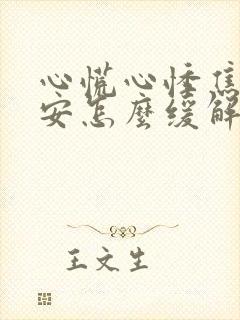 心慌心悸焦
安怎麼緩解
王文生